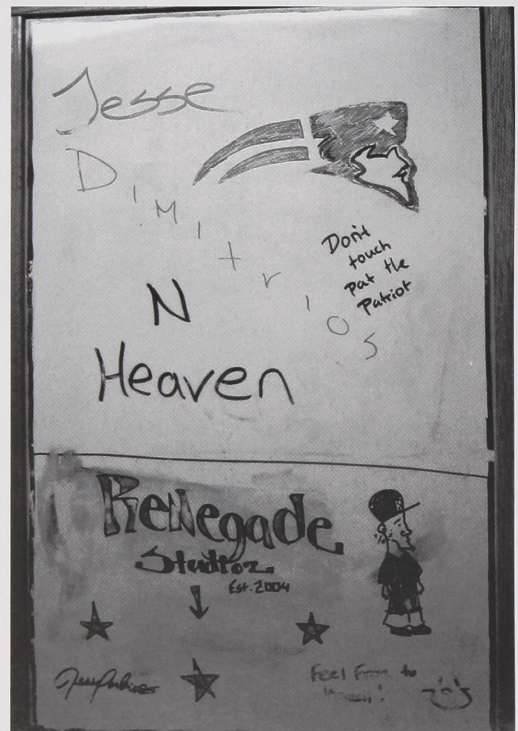 Jesse
Dimitrios
Don't
touch
pat the
Patriot
N
Heaven
Renegade
Studioz
Est. 2004
Feel to